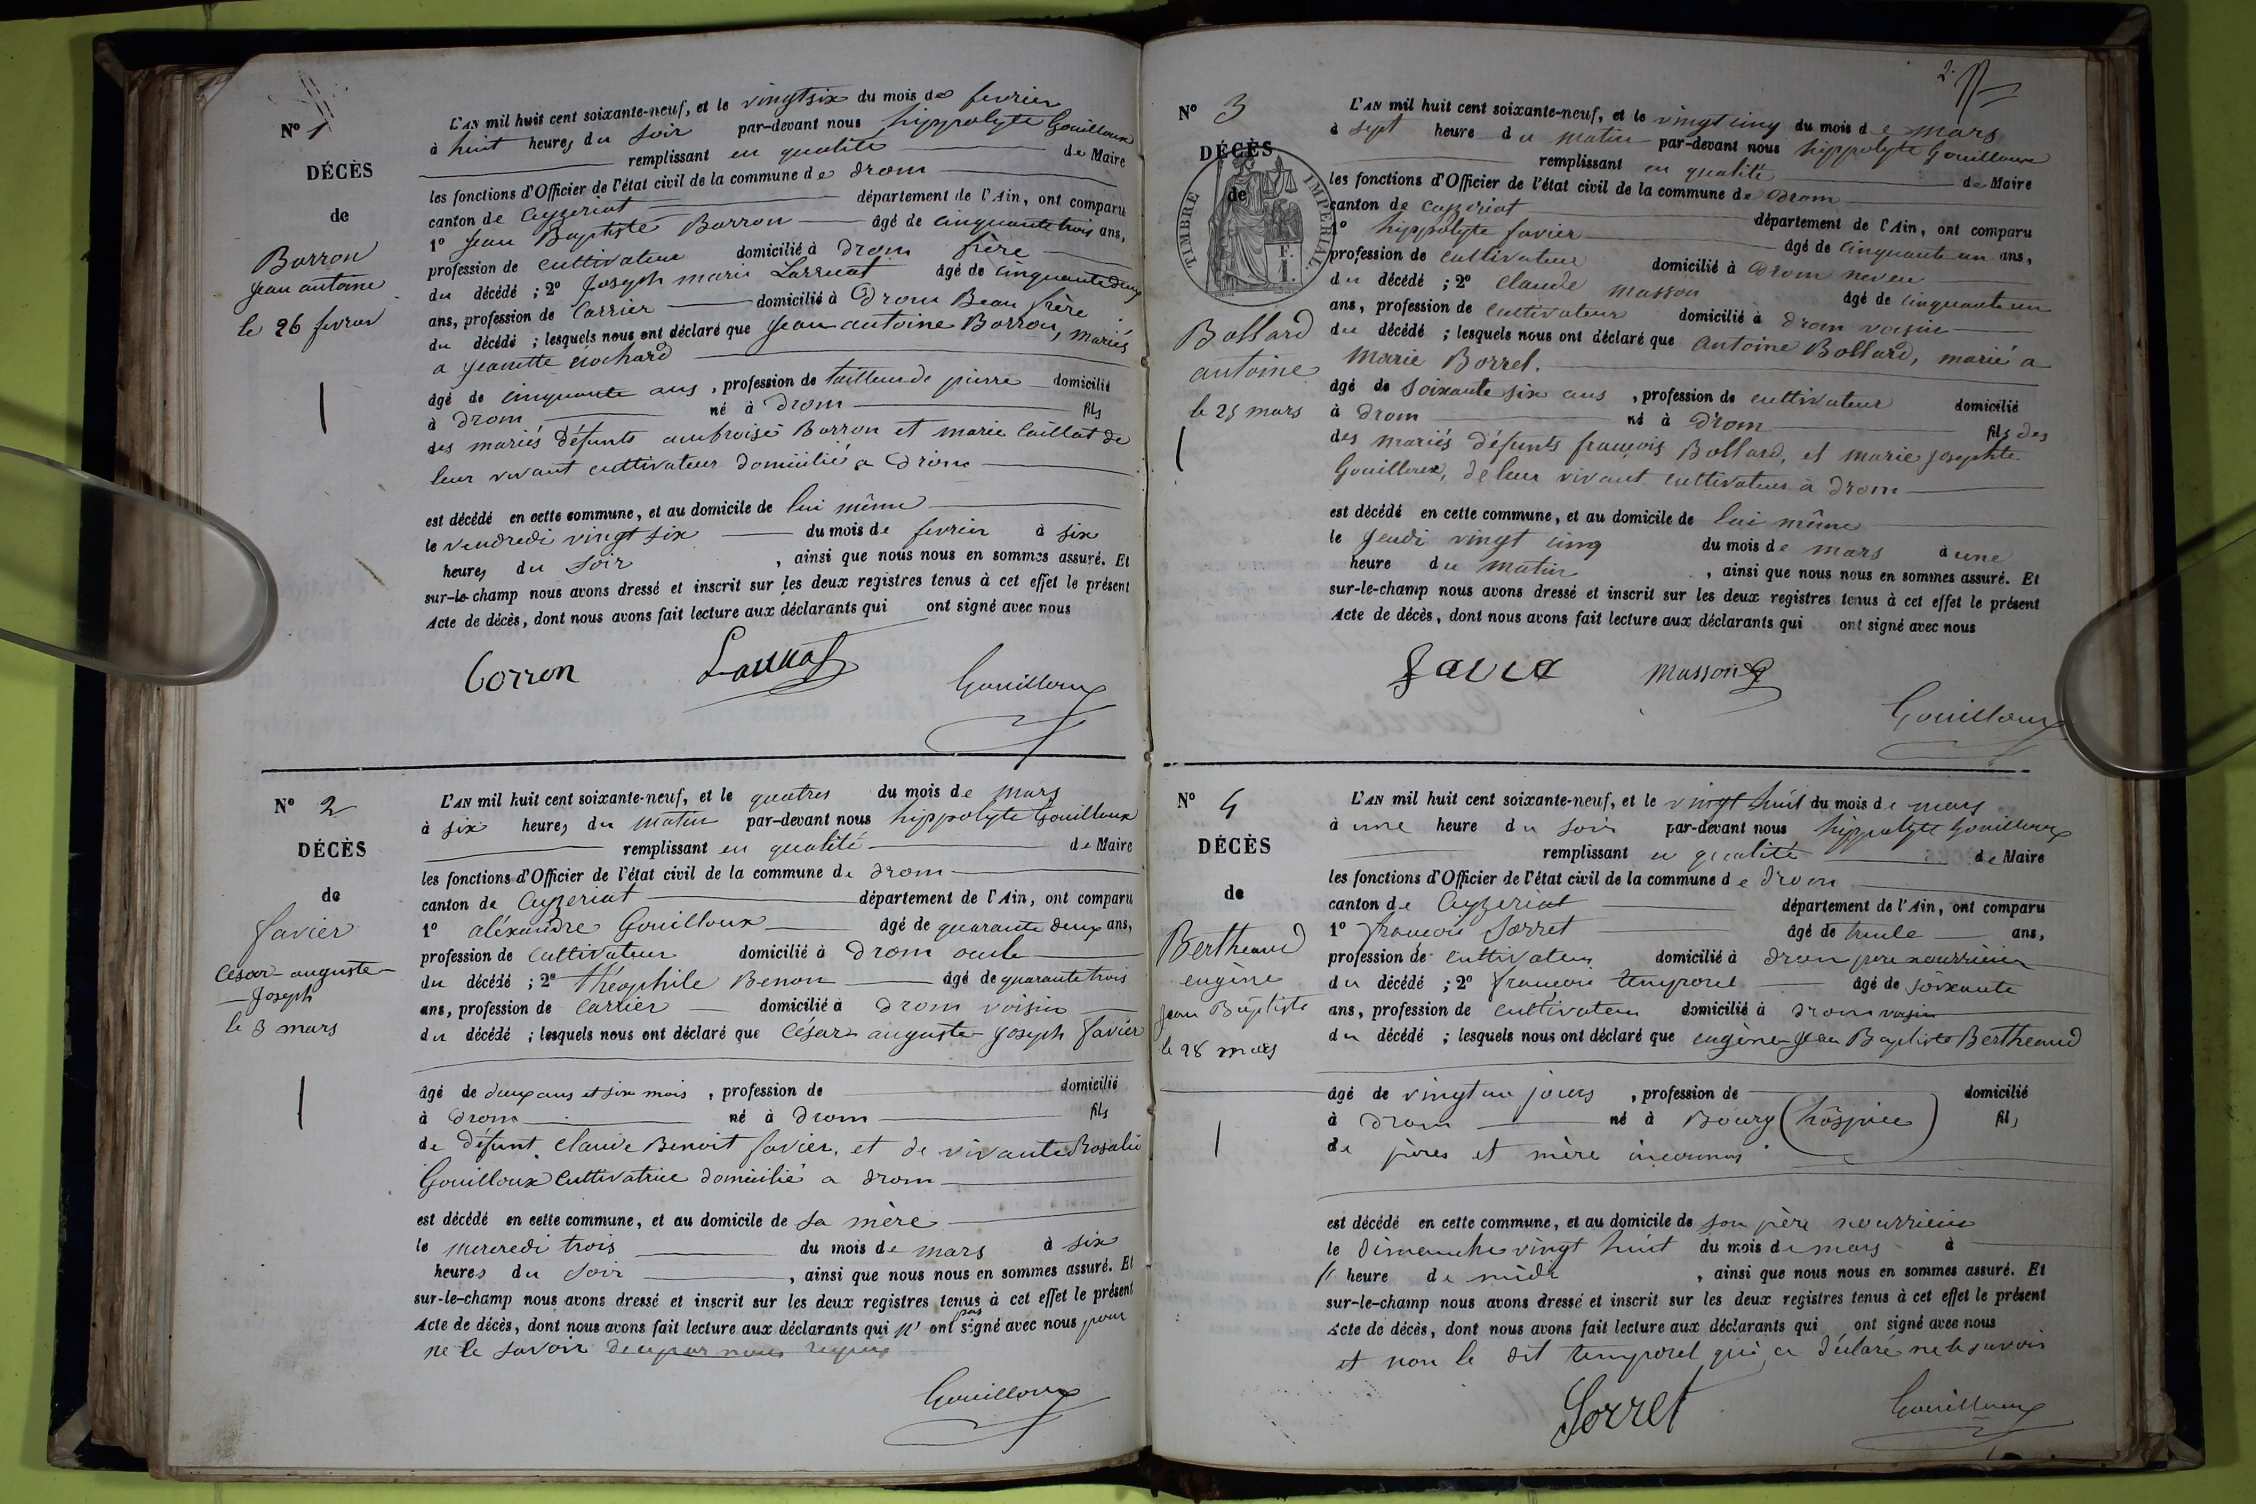 Nº 1
DÉCÈS
de
Borron
Jean antoine
le 26 fevrier
L'AN mil huit cent soixante-neuf, et le vingt six du mois de fevrier
à huit heures du soir par-devant nous hippolyte Gouilloux
remplissant en qualité de Maire
les fonctions d'Officier de l'état civil de la commune de drom
canton de Ceyzeriat département de l'Ain, ont comparu
1º Jean Baptiste Borron âgé de cinquante trois ans,
profession de cultivateur domicilié à drom frère
du décédé ; 2º Joseph marie Larruat âgé de cinquante deux
ans, profession de Carrier domicilié à Drom Beau frère
du décédé ; lesquels nous ont déclaré que Jean antoine Borron, mariés
a Jeanette
âgé de cinquante ans , profession de tailleur de pierre domicilié
à drom né à drom fils
des mariés défunts ambroise Borron et marie Caillat de
leur vivant cultivateur domicilié a Drom
est décédé en cette commune, et au domicile de lui même
le vendredi vingt six du mois de fevrier à six
heures du soir , ainsi que nous nous en sommes assuré. Et
sur-le-champ nous avons dressé et inscrit sur les deux registres tenus à cet effet le présent
Acte de décès, dont nous avons fait lecture aux déclarants qui ont signé avec nous
Borron Larruat Gouilloux
Nº 2
DÉCÈS
de
favier
César auguste
Joseph
le 3 mars
L'AN mil huit cent soixante-neuf, et le quatres du mois de mars
à six heures du matin par-devant nous hippolyte Gouilloux
remplissant en qualité de Maire
les fonctions d'Officier de l'état civil de la commune de drom
canton de Ceyzeriat département de l'Ain, ont comparu
1º aléxandre Gouilloux âgé de quarante deux ans,
profession de cultivateur domicilié à drom oncle
du décédé ; 2º théophile Benon âgé de quarante trois
ans, profession de carrier domicilié à drom voisin
du décédé ; lesquels nous ont déclaré que César auguste Joseph favier
âgé de deux ans et six mois , profession de domicilié
à drom né à drom fils
de défunt claude Benoit favier, et de vivante Rosalie
Gouilloux cultivatrice domicilié a drom
est décédé en cette commune, et au domicile de sa mère
le mercredi trois du mois de mars à six
heures du soir , ainsi que nous nous en sommes assuré. Et
sur-le-champ nous avons dressé et inscrit sur les deux registres tenus à cet effet le présent
Acte de décès, dont nous avons fait lecture aux déclarants qui n'ont pas signé avec nous pour
ne le savoir
Gouilloux
2
Nº 3
DÉCÈS
de
TIMBRE IMPERIAL
Bollard
antoine
le 25 mars
L'AN mil huit cent soixante-neuf, et le vingt cinq du mois de mars
à sept heure du matin par-devant nous hippolyte Gouilloux
remplissant en qualité de Maire
les fonctions d'Officier de l'état civil de la commune de Drom
canton de ceyzeriat département de l'Ain, ont comparu
1º hippolyte favier âgé de cinquante un ans,
profession de cultivateur domicilié à Drom neveu
du décédé ; 2º claude masson âgé de cinquante un
ans, profession de cultivateur domicilié à drom voisin
du décédé ; lesquels nous ont déclaré que antoine Bollard, marié a
Marie Borrel.
âgé de soixante six ans , profession de cultivateur domicilié
à drom né à Drom fils des
des mariés défunts françois Bollard, et marie josephte
Gouilloux, de leur vivant cultivateur à drom
est décédé en cette commune, et au domicile de lui même
le Jeudi vingt cinq du mois de mars à une
heure du matin , ainsi que nous nous en sommes assuré. Et
sur-le-champ nous avons dressé et inscrit sur les deux registres tenus à cet effet le présent
Acte de décès, dont nous avons fait lecture aux déclarants qui ont signé avec nous
Masson Gouilloux
Nº 4
DÉCÈS
de
Bertheaud
eugène
Jean Baptiste
le 28 mars
L'AN mil huit cent soixante-neuf, et le vingt huit du mois de mars
à une heure du soir par-devant nous hippolyte Gouilloux
remplissant en qualité de Maire
les fonctions d'Officier de l'état civil de la commune de drom
canton de Ceyzeriat département de l'Ain, ont comparu
1º françois Sorret âgé de trente ans,
profession de cultivateur domicilié à drom père nourricier
du décédé ; 2º françois temporel âgé de soixante
ans, profession de cultivateur domicilié à drom voisin
du décédé ; lesquels nous ont déclaré que eugène Jean Baptiste Bertheaud
âgé de vingt un jours , profession de domicilié
à Drom né à Bourg (hospice) fils
de pères et mère inconnus
est décédé en cette commune, et au domicile de son père nourricier
le Dimanche vingt huit du mois de mars à
heure de midi , ainsi que nous nous en sommes assuré. Et
sur-le-champ nous avons dressé et inscrit sur les deux registres tenus à cet effet le présent
Acte de décès, dont nous avons fait lecture aux déclarants qui ont signé avec nous
et non le dit temporel qui a déclaré ne le savoir
Sorret Gouilloux